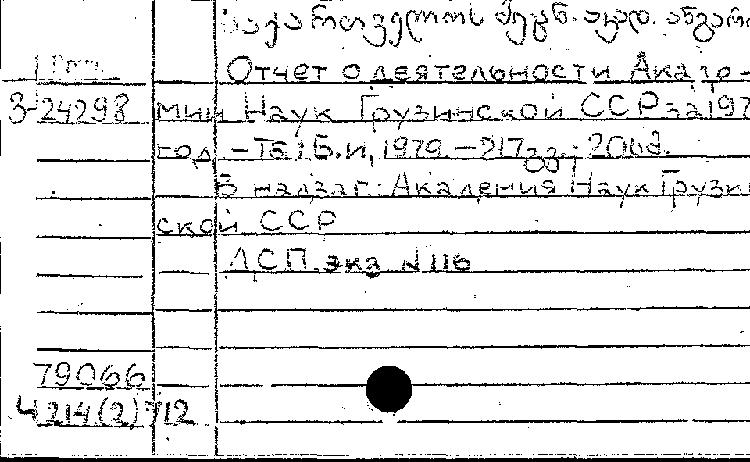 საქართველოს მეცნ. აკად. ანგარი
Отчет о деятельности Акаде-
З-24298 мии Наук Грузинской ССР за 197
год. - Тб: Б.и, 1979. - 217 გვ.; 20см.
В надзаг: Академия Наук Грузин
ской ССР
ДСП. экз N 116
79066
Ч 214(2) 712